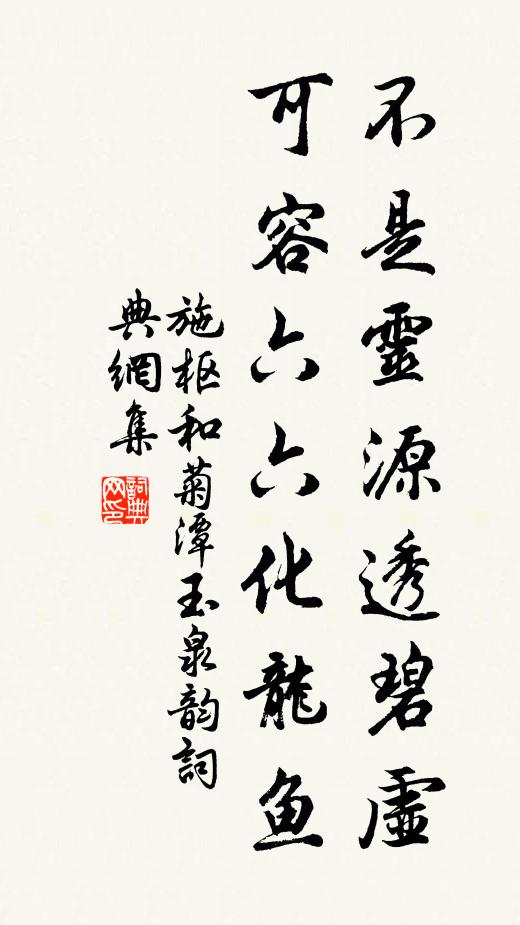 不是靈源透碧虛
可容六六化龍鱼
施枢和菊潭玉泉韵詞
典網集
詞典网印